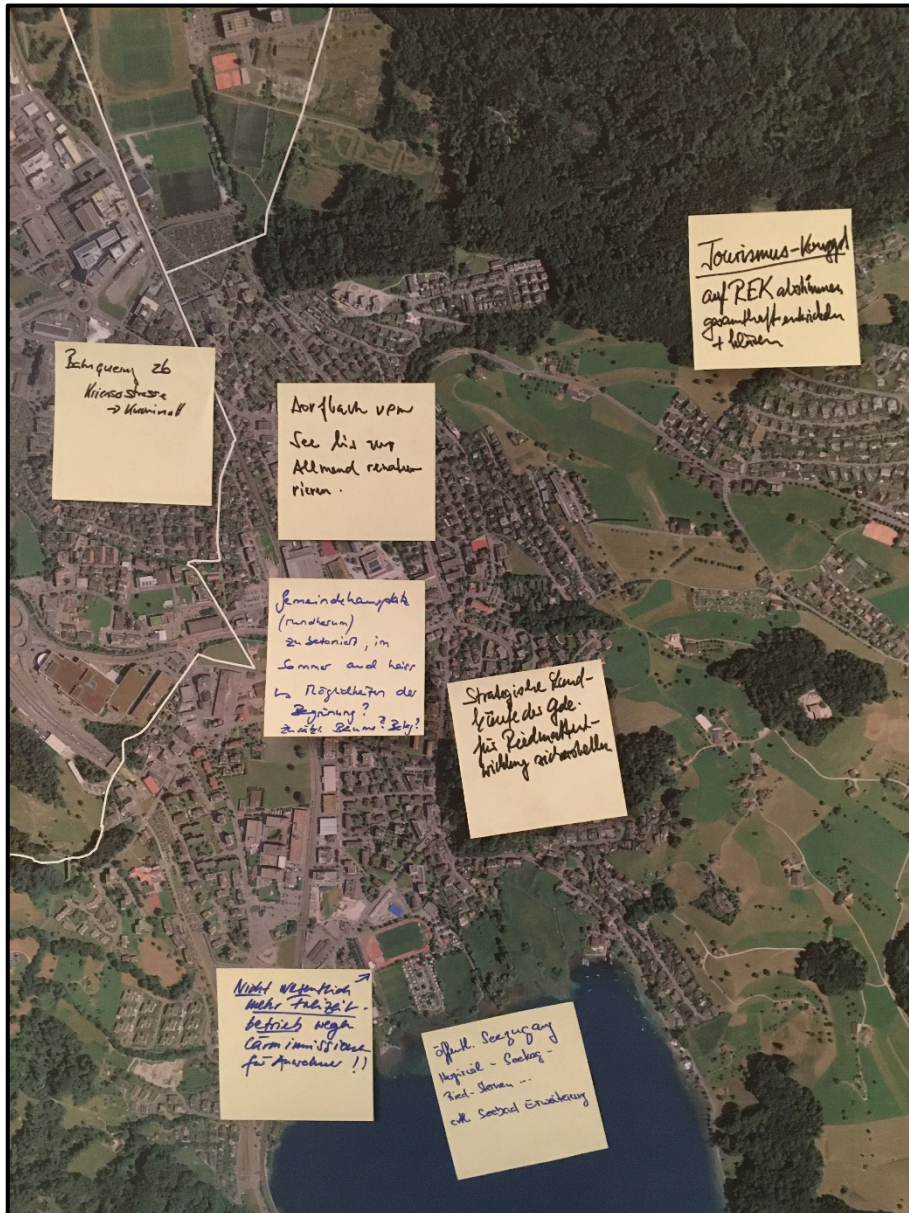 Tourismus-Konzept
auf REK abstimmen
gesamthaft entwickeln
+ klären
Bahnquerg zb
Kriensstrasse
→ Kuonimatt
Dorfbach vom
See bis zur
Allmend renatu-
rieren.
Gemeindehausplatz
(rundherum)
zu betoniert, im
Sommer auch heiss
↳ Möglichkeiten der
Begrünung?
zusätzl. Bäume? Belag?
Strategische Land-
käufe der Gde.
für Riedmattent-
wicklung sicherstellen
Nicht wesentlich
mehr Freizeit-
betrieb wegen
Lärmimmissionen
für Anwohner !!
öffentl. Seezugang
- Seehag -
Ried - Sternen ...
evtl. Seebad Erweiterung